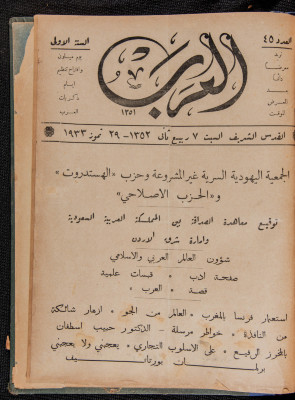 العدد ٤٥
السنة الاولى
العرب
١٣٥١
القدس الشريف السبت ٧ ربيع ثان ١٣٥٢ - ٢٩ تموز ١٩٣٣
الجمعية اليهودية السرية غير المشروعة وحزب «الهستدروت»
و«الحزب الاصلاحي»
توقيع معاهدة الصداقة بين المملكة العربية السعودية
وامارة شرق الاردن
شؤون العالم العربي والاسلامي
صفحة ادب * قبسات علمية
قصة * العرب *
استعمار فرنسا بالمغرب * العالم من الجو * ازهار شائكة
من النافذة * خواطر مرسلة - الدكتور حبيب اسطفان
بالمحرز الرفيع * على الاسلوب التجاري * يعجبني ولا يعجبني